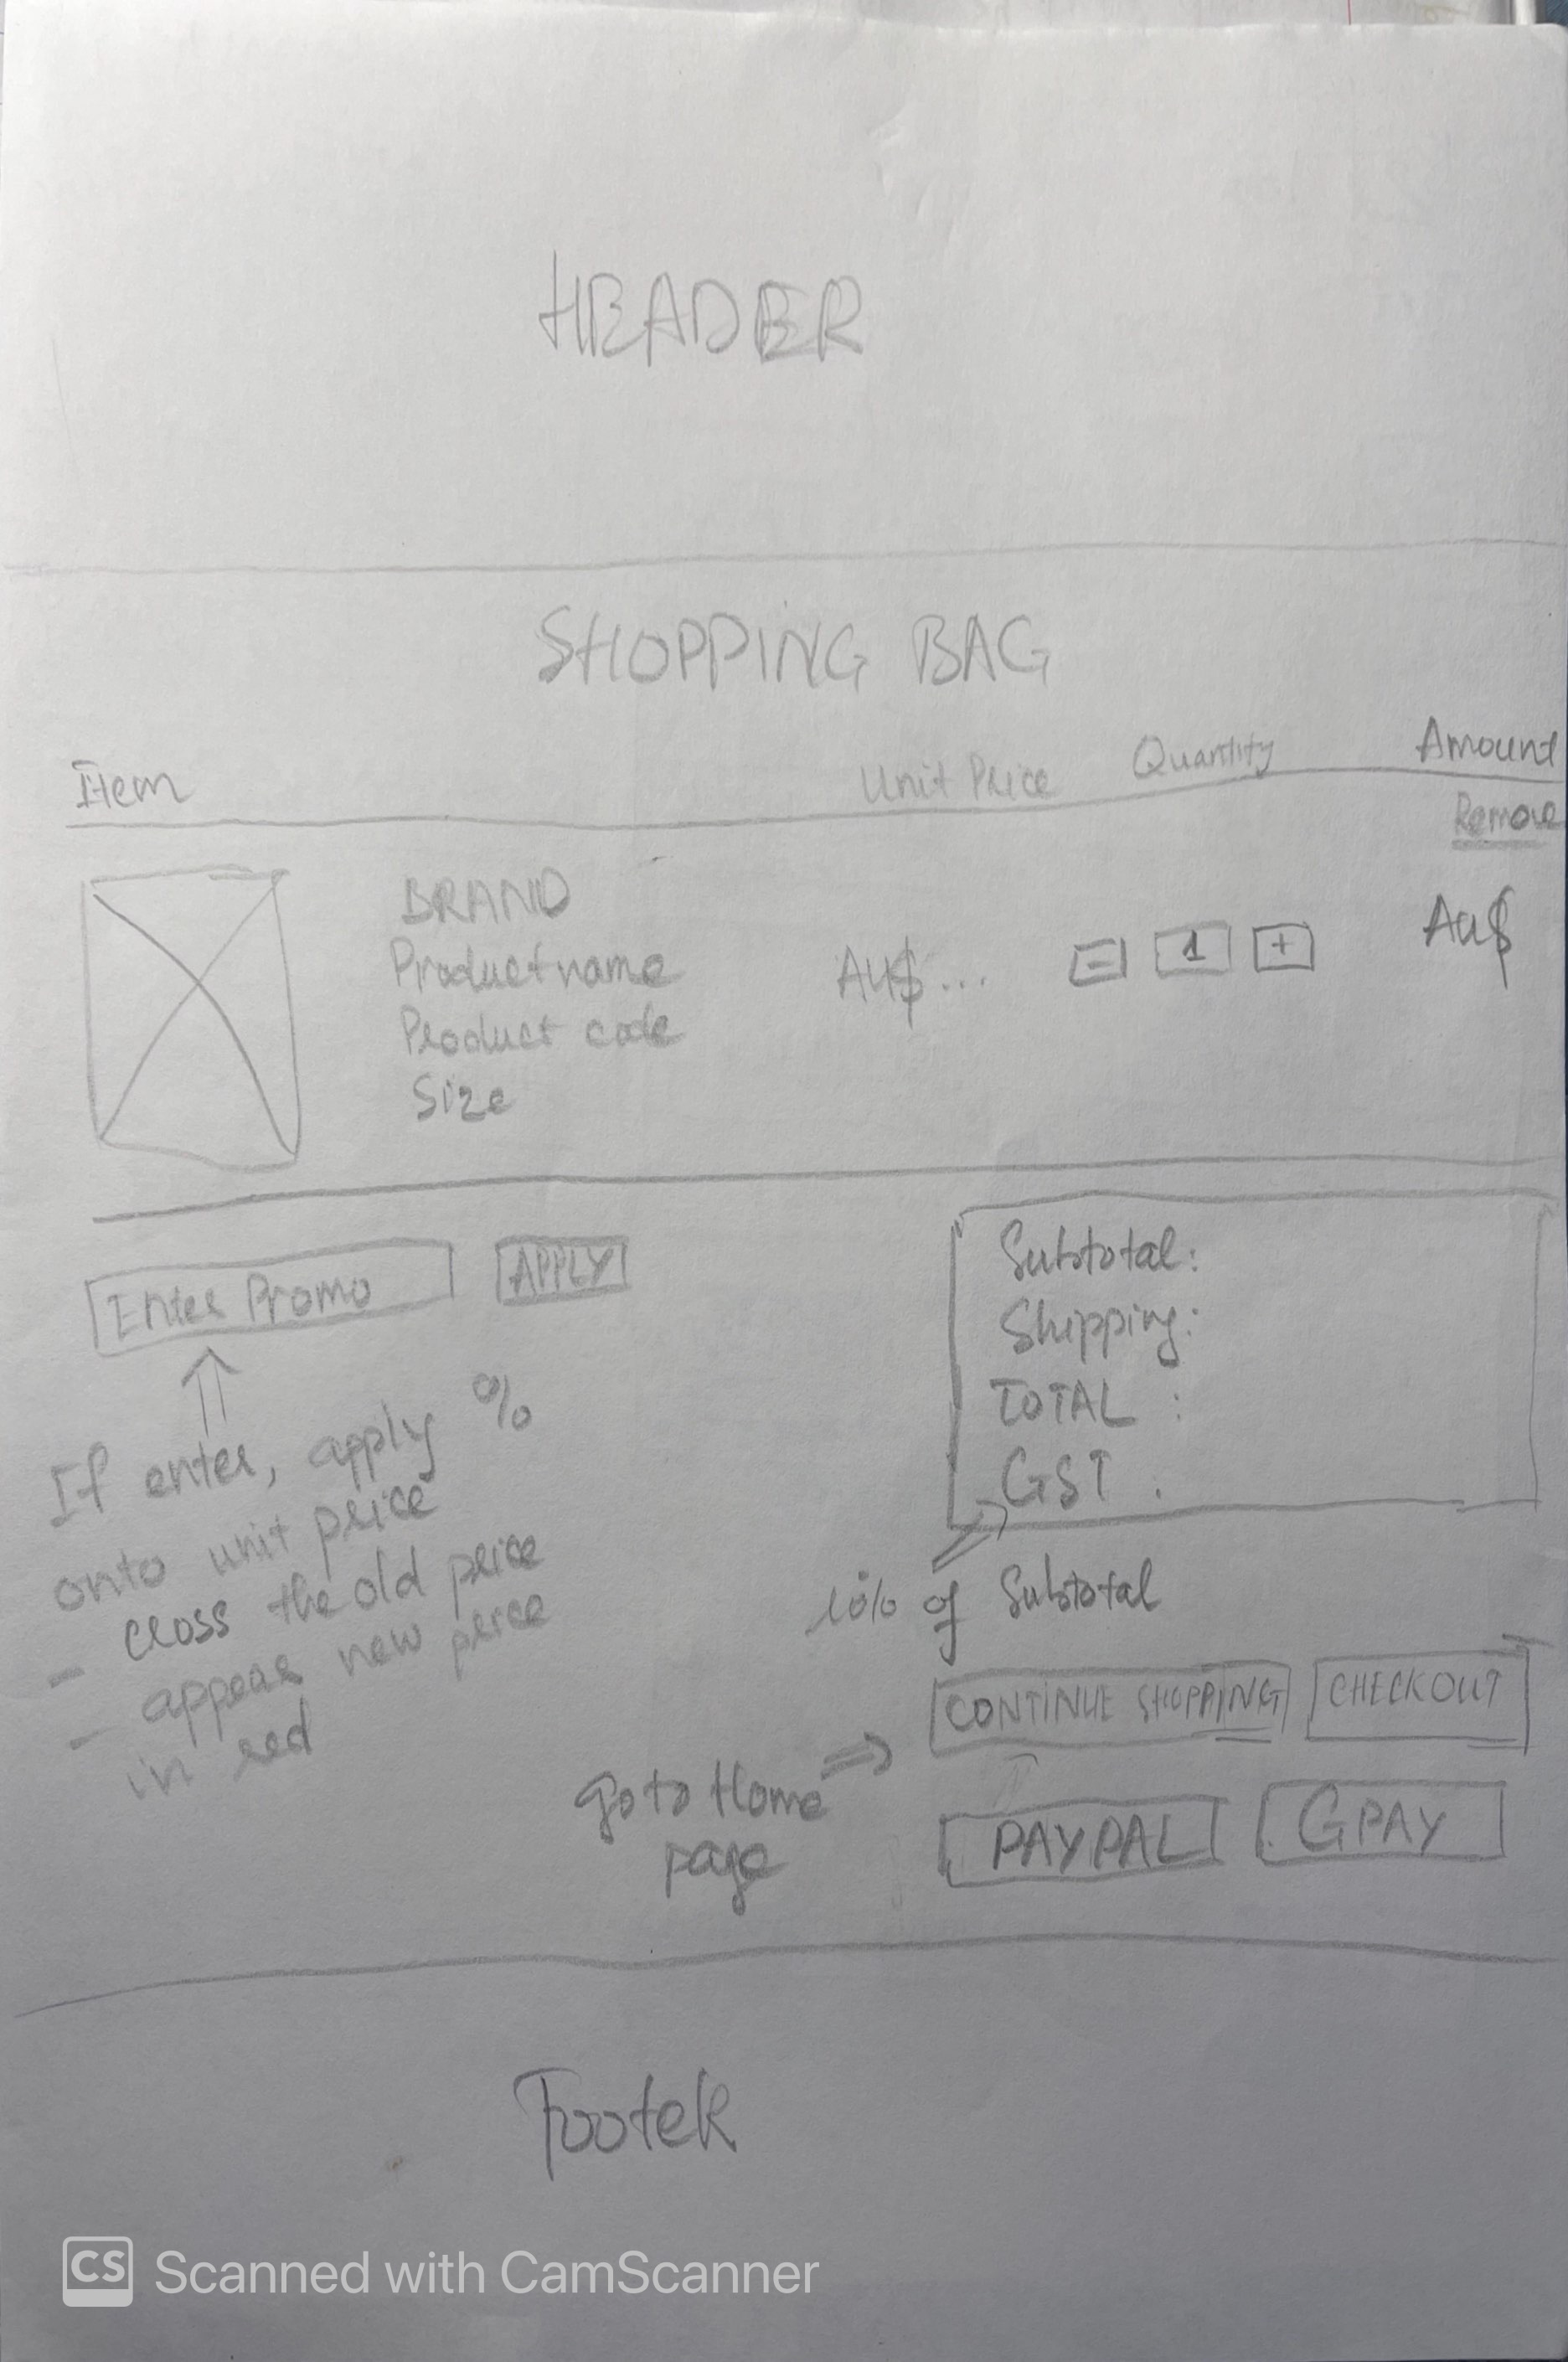 HEADER
SHOPPING BAG
Item Unit Price Quantity Amount
Remove
BRAND
Product name
Product code
Size
AU$... - 1 + Au$
Enter Promo APPLY
If enter, apply %
onto unit price
- cross the old price
- appear new price
in red
Subtotal:
Shipping:
TOTAL :
GST :
10% of Subtotal
CONTINUE SHOPPING CHECKOUT
Go to Home
page
PAYPAL GPAY
Footer
CS Scanned with CamScanner